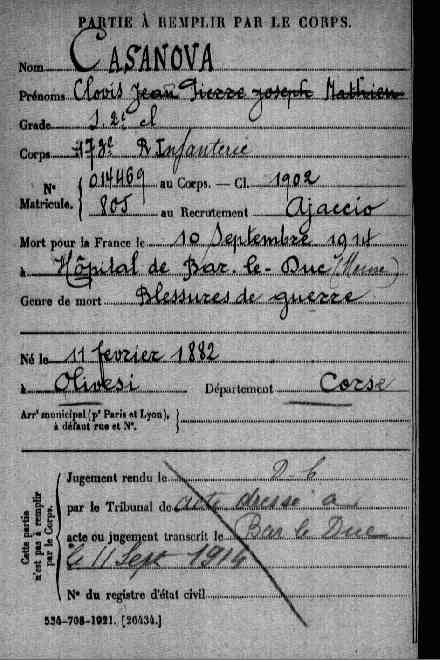 PARTIE À REMPLIR PAR LE CORPS.
Nom CASANOVA
Prénoms Clovis Jean Pierre Joseph Mathieu
Grade S. 2e cl
Corps 173e R Infanterie
No Matricule. 014469 au Corps. — Cl. 1902
805 au Recrutement Ajaccio
Mort pour la France le 10 Septembre 1914
à Hôpital de Bar-le-Duc (Meuse)
Genre de mort Blessures de guerre
Né le 11 février 1882
à Olivesi Département Corse
Arrt municipal (pr Paris et Lyon),
à défaut rue et No.
Cette partie
n'est pas à remplir
par le Corps.
Jugement rendu le
par le Tribunal de acte dressé à
acte ou jugement transcrit le Bar le Duc
le 11 Sept 1914
No du registre d'état civil
534-708-1921. [26434.]